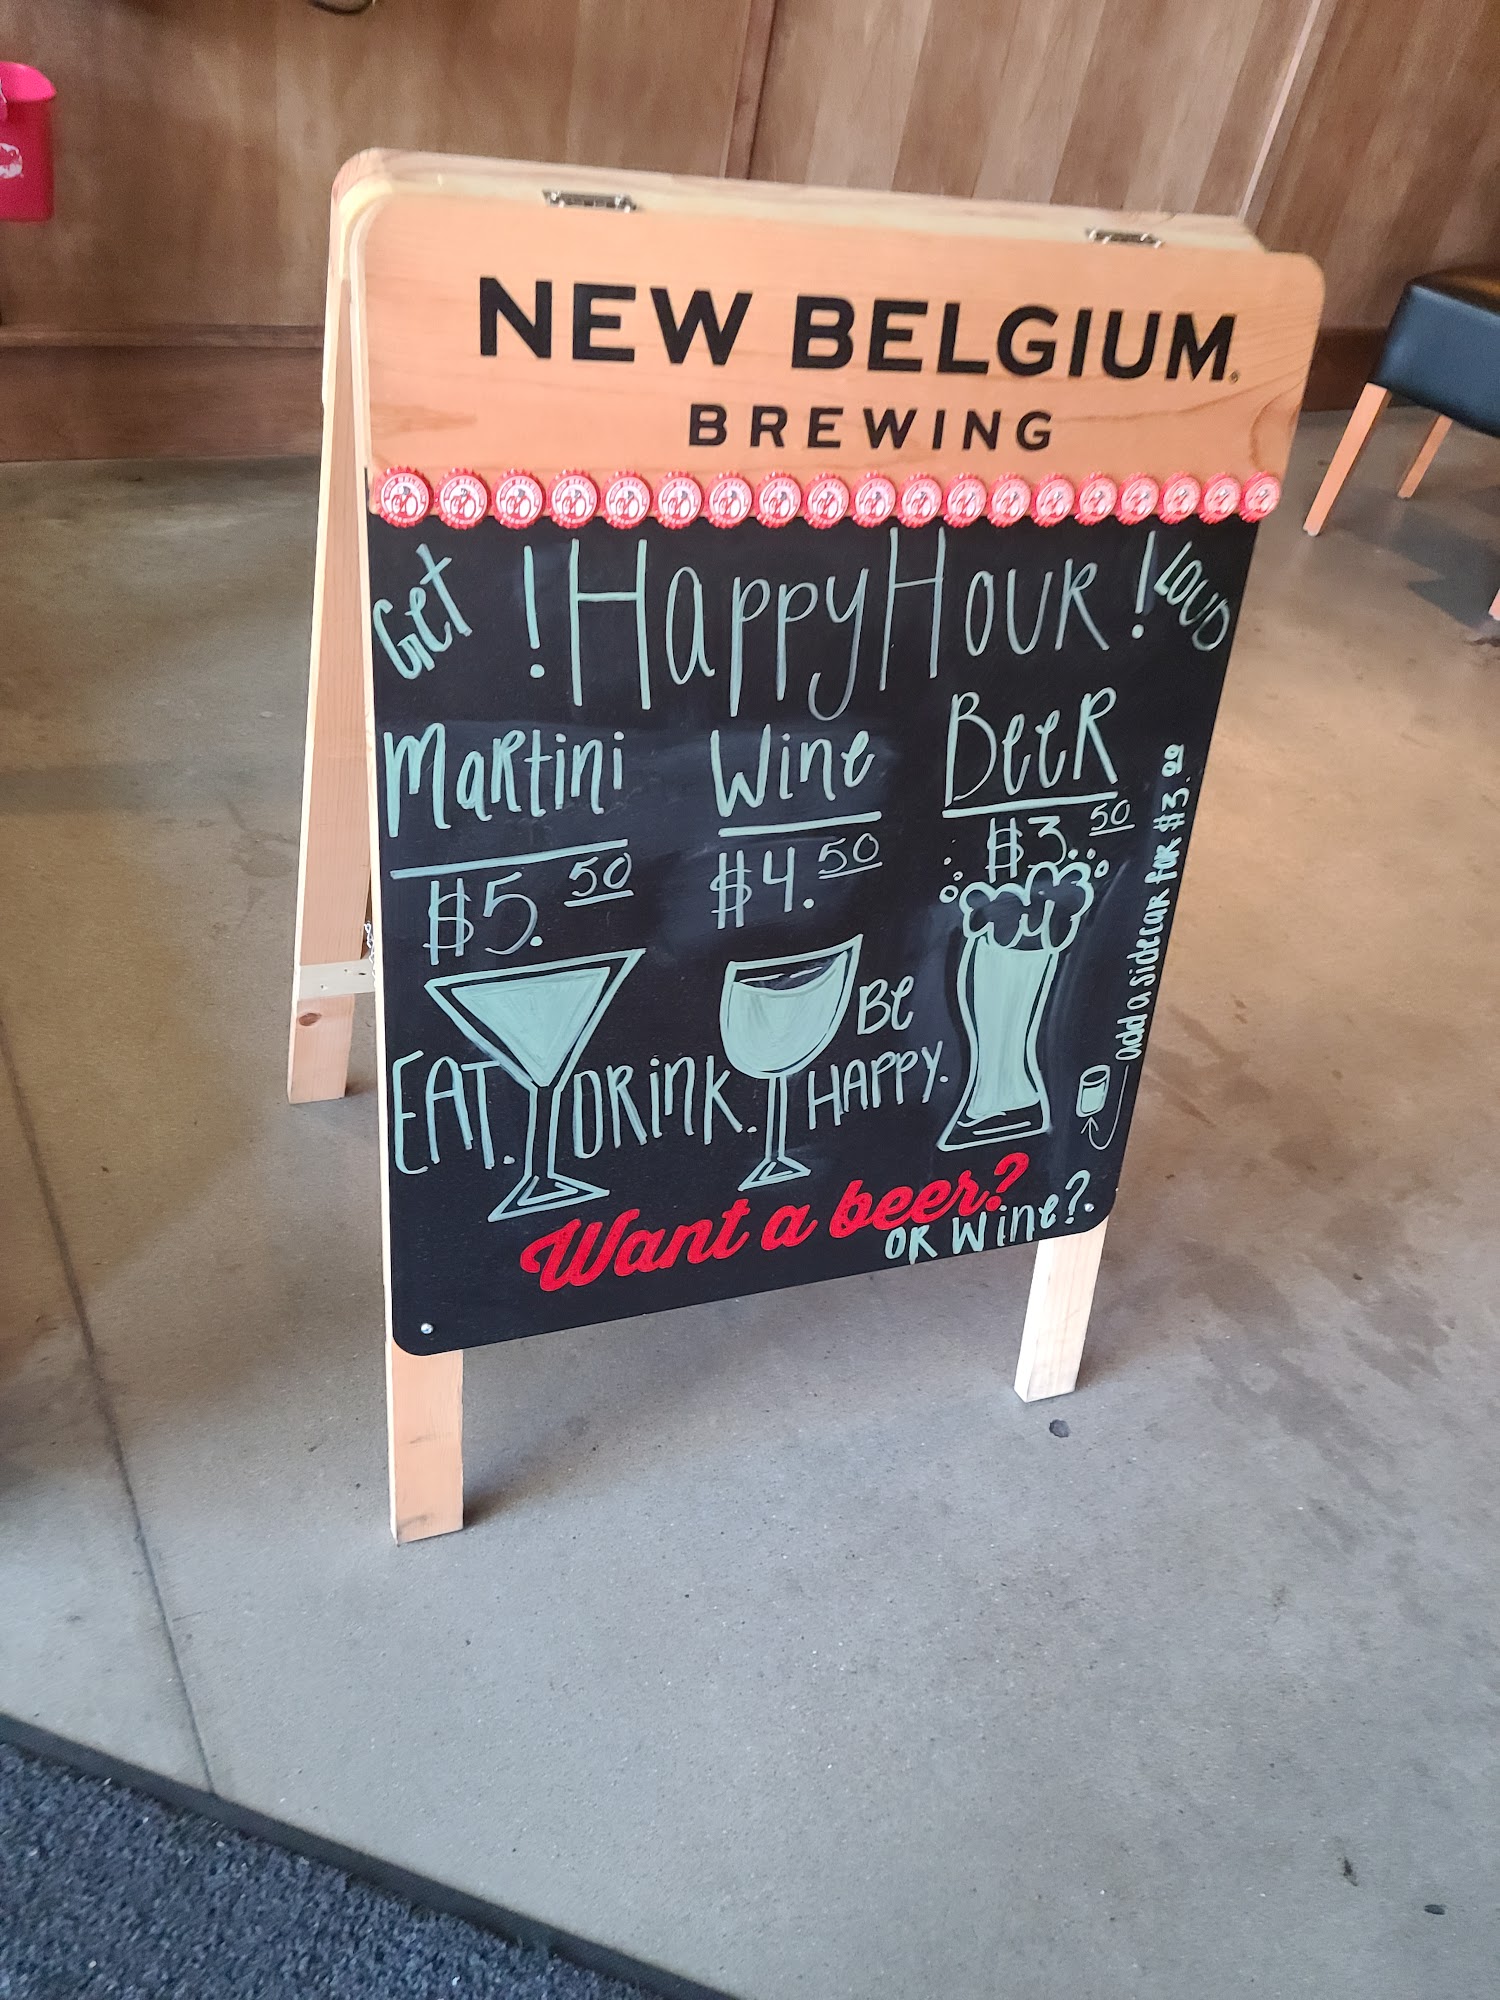 NEW BELGIUM
BREWING
Get ! Happy Hour ! LOUD
Martini
$5.50
Wine
$4.50
Beer
$3.50
add a sidecar for $3.00
EAT. DRink. Be HAPPY.
Want a beer?
OR Wine?